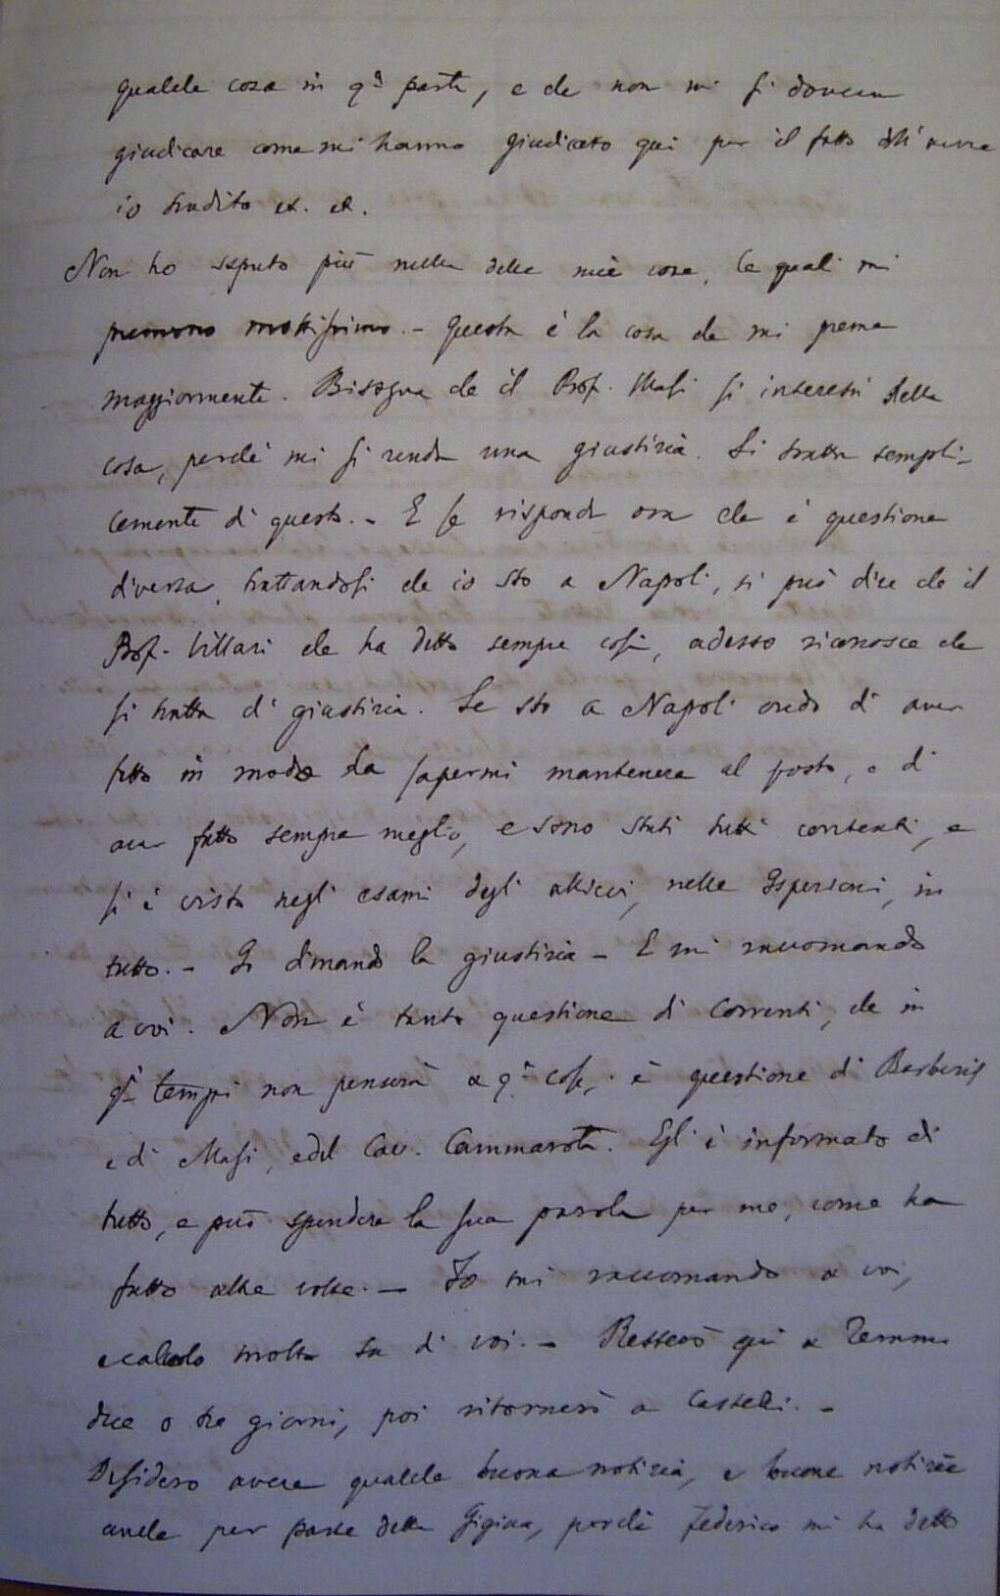 qualche cosa in q.ª parte, e che non mi si doveva
giudicare come mi hanno giudicato qui per il fatto
io tradito ec. ec.
Non ho saputo più nulla delle mie cose, le quali mi
premono moltissimo. - Questa è la cosa che mi preme
maggiormente. Bisogna che il Prof. Masi si interessi della
cosa, perchè mi si renda una giustizia. Si tratta sempli-
cemente di questo. - E se risponde ora che è questione
diversa, trattandosi che io sto a Napoli, si può dire che il
Prof. Villari che ha detto sempre così, adesso riconosce che
si tratta di giustizia. Se sto a Napoli credo di aver
fatto in modo da sapermi mantenere al posto, e di
aver fatto sempre meglio, e sono stati tutti contenti, e
si è visto negli esami degli allievi, nelle Ispezioni, in
tutto. - Io dimando la giustizia - E mi raccomando
a voi. Non è tanto questione di Correnti, che in
q.i tempi non penserà a q.e cose, è questione di Barberis
e di Masi, e del Cav. Cammarota. Egli è informato di
tutto, e può spendere la sua parola per me, come ha
fatto altre volte. - Io mi raccomando a voi,
e calcolo molto su di voi. - Resterò qui a Teramo
due o tre giorni, poi ritornerò a Castelli. -
Desidero avere qualche buona notizia, e buone notizie
anche per parte della Gigina, perchè Federico mi ha detto